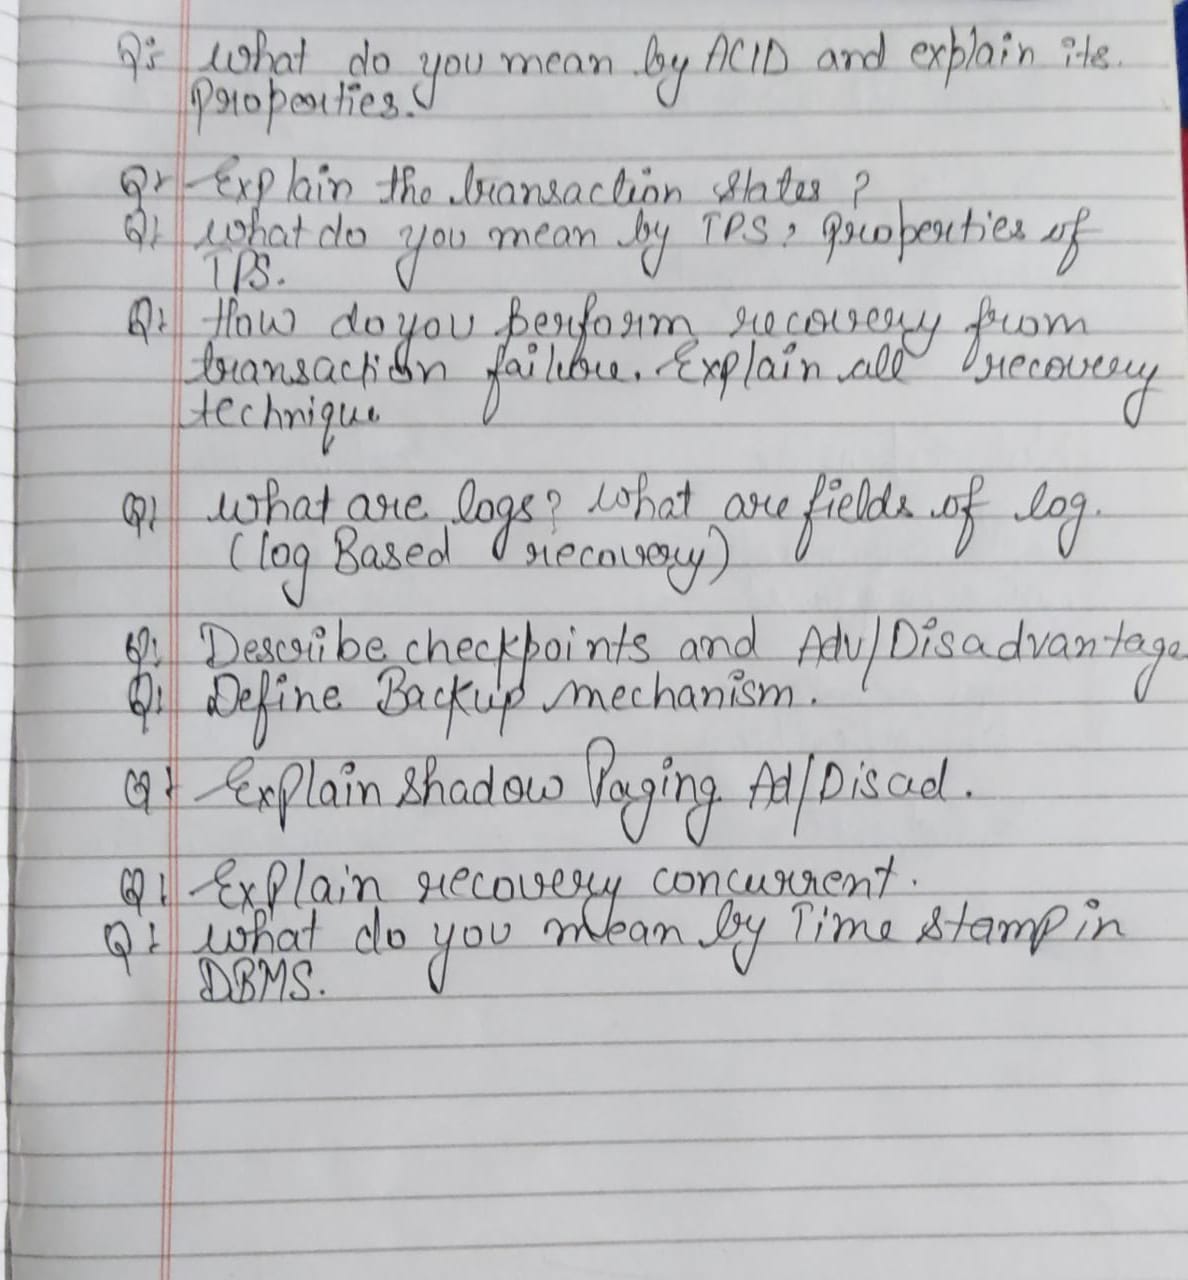 Q: What do you mean by ACID and explain its.
properties.
Q: Explain the transaction states ?
Q: What do you mean by TPS, properties of
TPS.
Q: How do you perform recovery from
transaction failure. Explain all recovery
technique
Q: What are logs? What are fields of log.
(log Based recovery)
Q: Describe checkpoints and Adv/Disadvantage
Q: Define Backup mechanism.
Q: Explain shadow Paging Ad/Disad.
Q: Explain recovery concurrent.
Q: What do you mean by Time stamp in
DBMS.